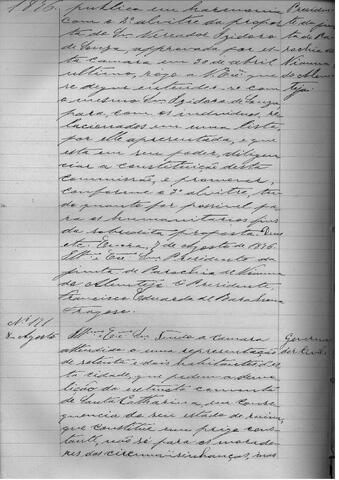 1876
publica em harmonia
com o 2º alvitre da proposta
do Sr. Vereador Izidoro
de Souza, approvada por el
ta Camara em 20 de abril
ultimo, rogo a V. Exª que
se digne entender-se com
o mesmo Sr. Izidoro de Souza
para, com os individuos, re
lacionados em uma lista
por elle apresentada, e que
está em seu poder, diligen
ciar a constituição desta
commissão, e promover,
conforme o 3º alvitre, tu
do quanto for possivel pa
ra os humanitarios fins
da sobredita proposta. Deus
etc. Evora, 7 de Agosto de 1876.
Illmo e Exmo Sr. Presidente da
junta de Parochia de Vianna
do Alemtejo. O Presidente,
Francisco Eduardo de Barahona
Fragoso.
Presidente
da junta
de Pa
rochia de
Vianna
do Alem
tejo.
Nº 171
8 Agosto
Illmo Exmo Sr. Tendo a Camara
attendido a uma representação
de setenta e dois habitantes des
ta cidade, que pedem a demo
lição do extincto convento
de Santa Catharina, em conse
quencia do seu estado de ruina,
que constitue um perigo cons
tante, não só para os morado
res das circumvisinhanças, mas
Governa
dor Civil.